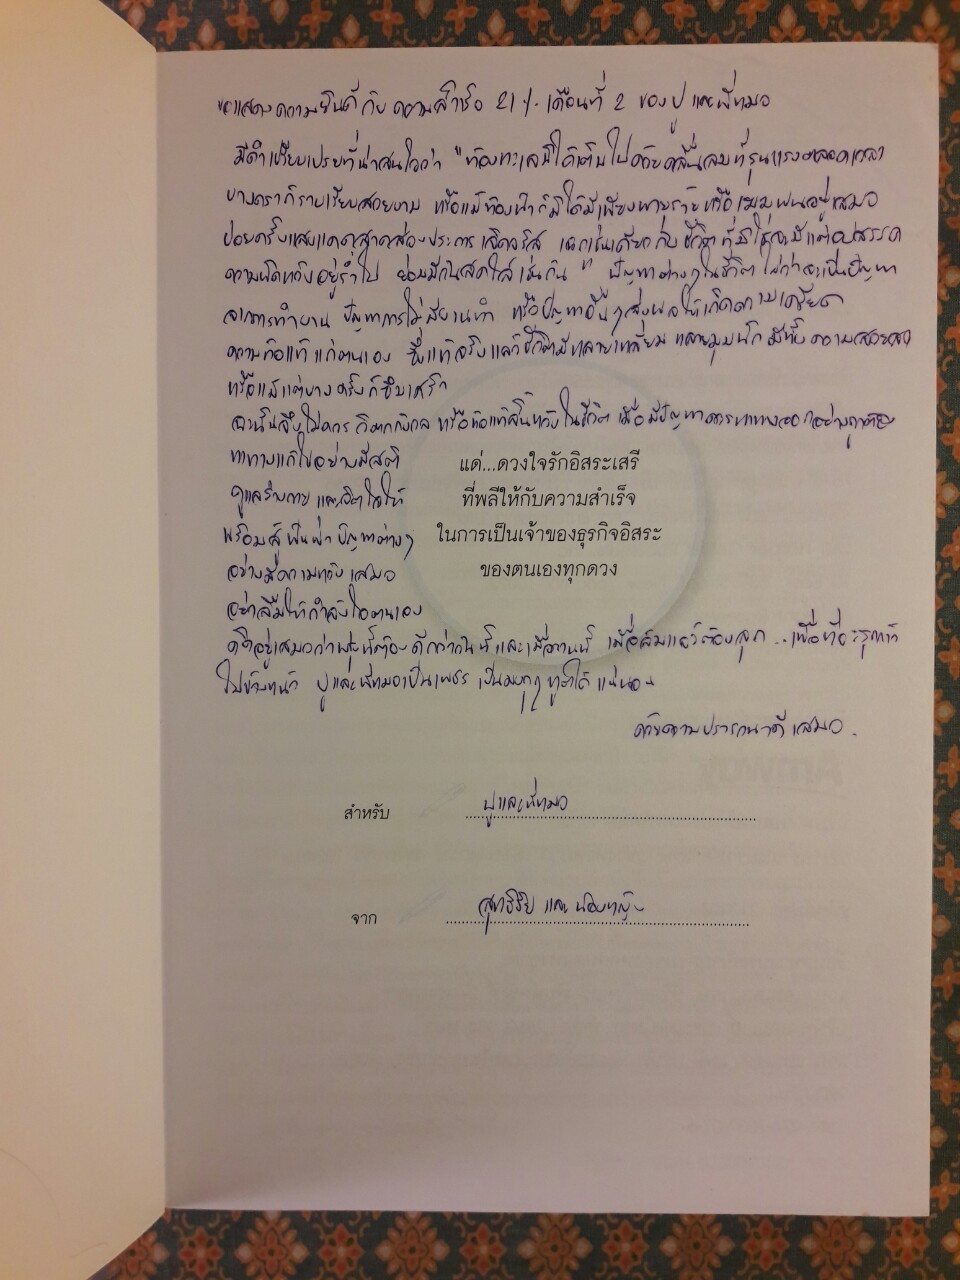 ขอแสดงความยินดีกับความสำเร็จ 21% เดือนที่ 2 ของปูและพี่หมอ
มีคำเปรียบเปรยที่น่าสนใจว่า "ท้องทะเลมิได้เต็มไปด้วยคลื่นลมที่รุนแรงตลอดเวลา
บางคราก็ราบเรียบสวยงาม หรือแม้ท้องฟ้าก็มิได้มีเพียงพายุร้ายหรือเมฆฝนอยู่เสมอ
บ่อยครั้งแสงแดดสาดส่องประกายเจิดจรัส เฉกเช่นเดียวกับชีวิตที่มิใช่จะมีแต่อุปสรรค
ความผิดหวังอยู่ร่ำไป ย่อมมีวันสดใสเช่นกัน" ปัญหาต่างๆในชีวิต ไม่ว่าจะเป็นปัญหา
จากการทำงาน ปัญหาการไม่มียานทำ หรือปัญหาอื่นๆส่งผลให้เกิดความเครียด
ความท้อแท้แก่ตนเอง ซึ่งแท้จริงแล้วชีวิตมีหลายเหลี่ยม หลายมุมนัก มีทั้งความสวยสด
หรือแม้แต่บางครั้งก็ซึมเศร้า
ฉะนั้นจึงไม่ควรวิตกกังวล หรือท้อแท้สิ้นหวังในชีวิต เมื่อมีปัญหาควรหาทางออกอย่างถูกต้อง
หาทางแก้ไขอย่างมีสติ
ดูแลร่างกายและจิตใจให้
พร้อมสู้ฟันฝ่าปัญหาต่างๆ
อย่างมีความหวังเสมอ
อย่าลืมให้กำลังใจตนเอง
แด่...ดวงใจรักอิสระเสรี
ที่พลีให้กับความสำเร็จ
ในการเป็นเจ้าของธุรกิจอิสระ
ของตนเองทุกดวง
คิดอยู่เสมอว่าพรุ่งนี้ต้องดีกว่าวันนี้และเมื่อวานนี้ เมื่อล้มแล้วต้องลุก...เพื่อที่จะรุกก้าว
ไปข้างหน้า ปูและพี่หมอเป็นเพชร เป็นมงกุฎทูตได้แน่นอน
ด้วยความปรารถนาดีเสมอ.
สำหรับ ปูและพี่หมอ
จาก สุทธิชัย และ น้องหญิง